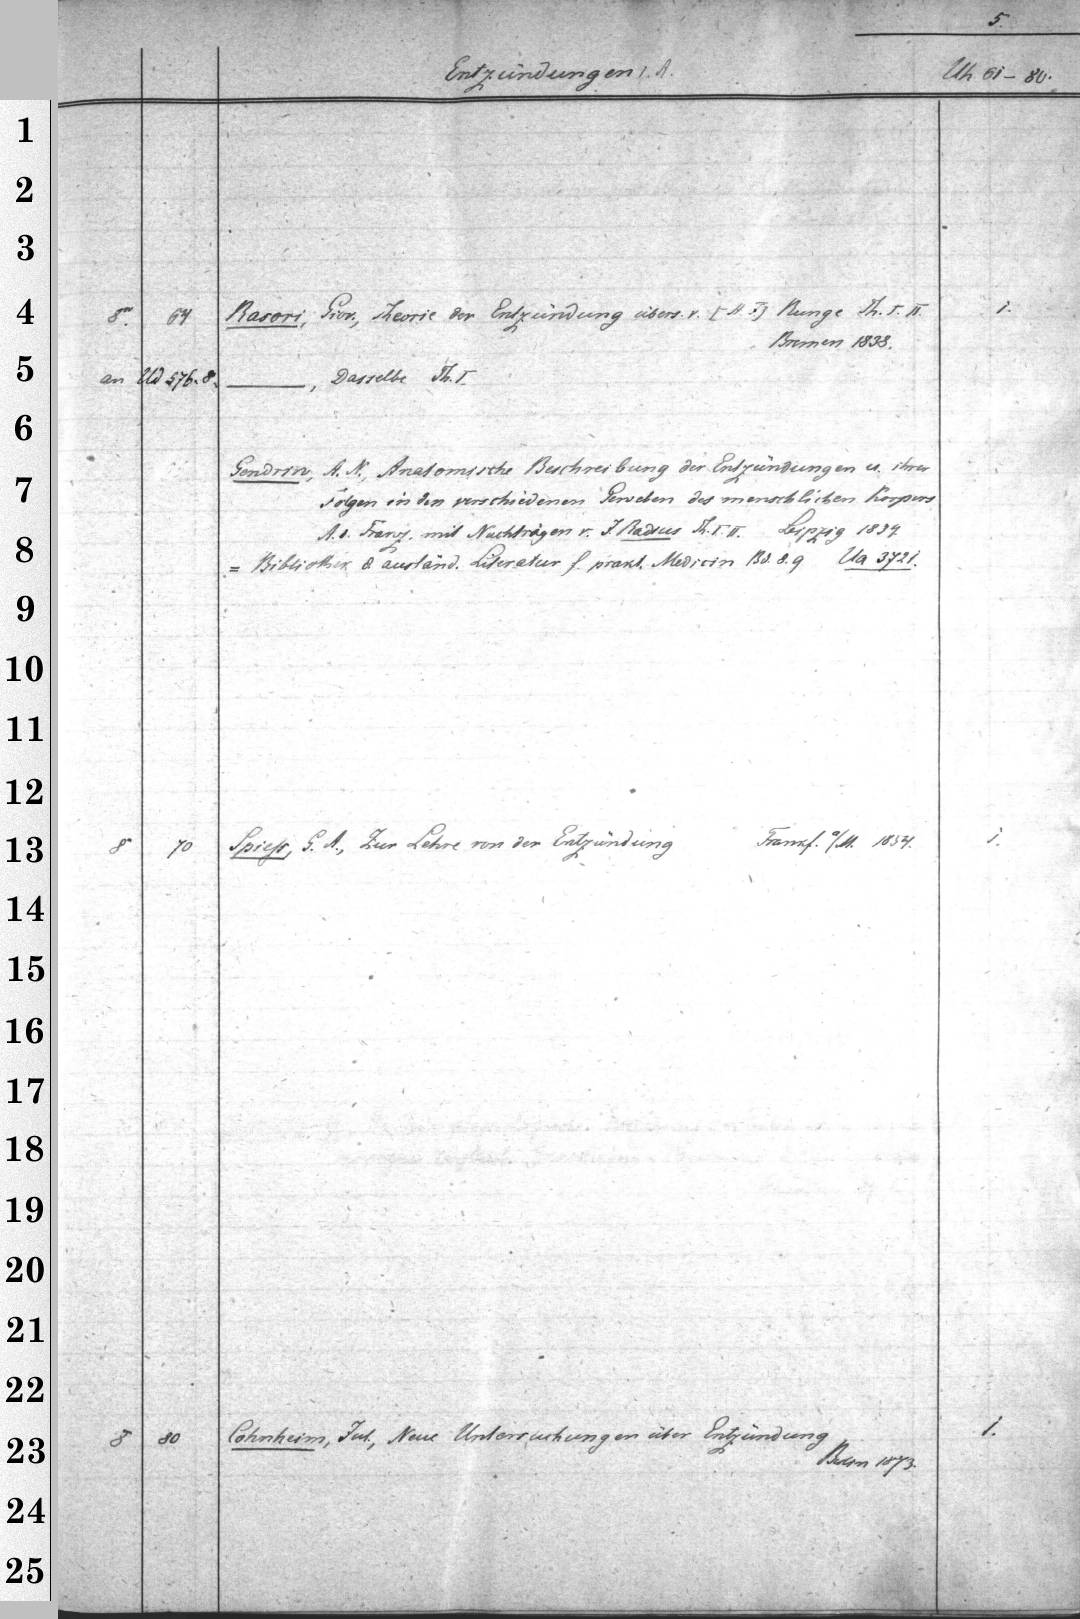 5.
Entzündungen i. A.
Uh 61-80.
1
2
3
4 8° 64 Rasori, Giov., Theorie der Entzündung übers. v. Runge Th. I. II. 1.
Bremen 1838.
5 an Ud 576. 8. ———, Dasselbe Th. I.
6
Gendrin, A. N., Anatomische Beschreibung der Entzündungen u. ihrer
7 Folgen in den verschiedenen Geweben des menschlichen Körpers
A. d. Franz. mit Nachträgen v. J. Radius Th. I. II. Leipzig 1834
8 = Bibliothek d ausländ. Literatur f. prakt. Medicin Bd. 8. 9 Ua 3721.
9
10
11
12
13 8° 70 Spieſs, G. A., Zur Lehre von der Entzündung Frankf. a/M. 1854. 1.
14
15
16
17
18
19
20
21
22
23 8° 80 Cohnheim, Jul., Neue Untersuchungen über Entzündung 1.
Berlin 1873.
24
25